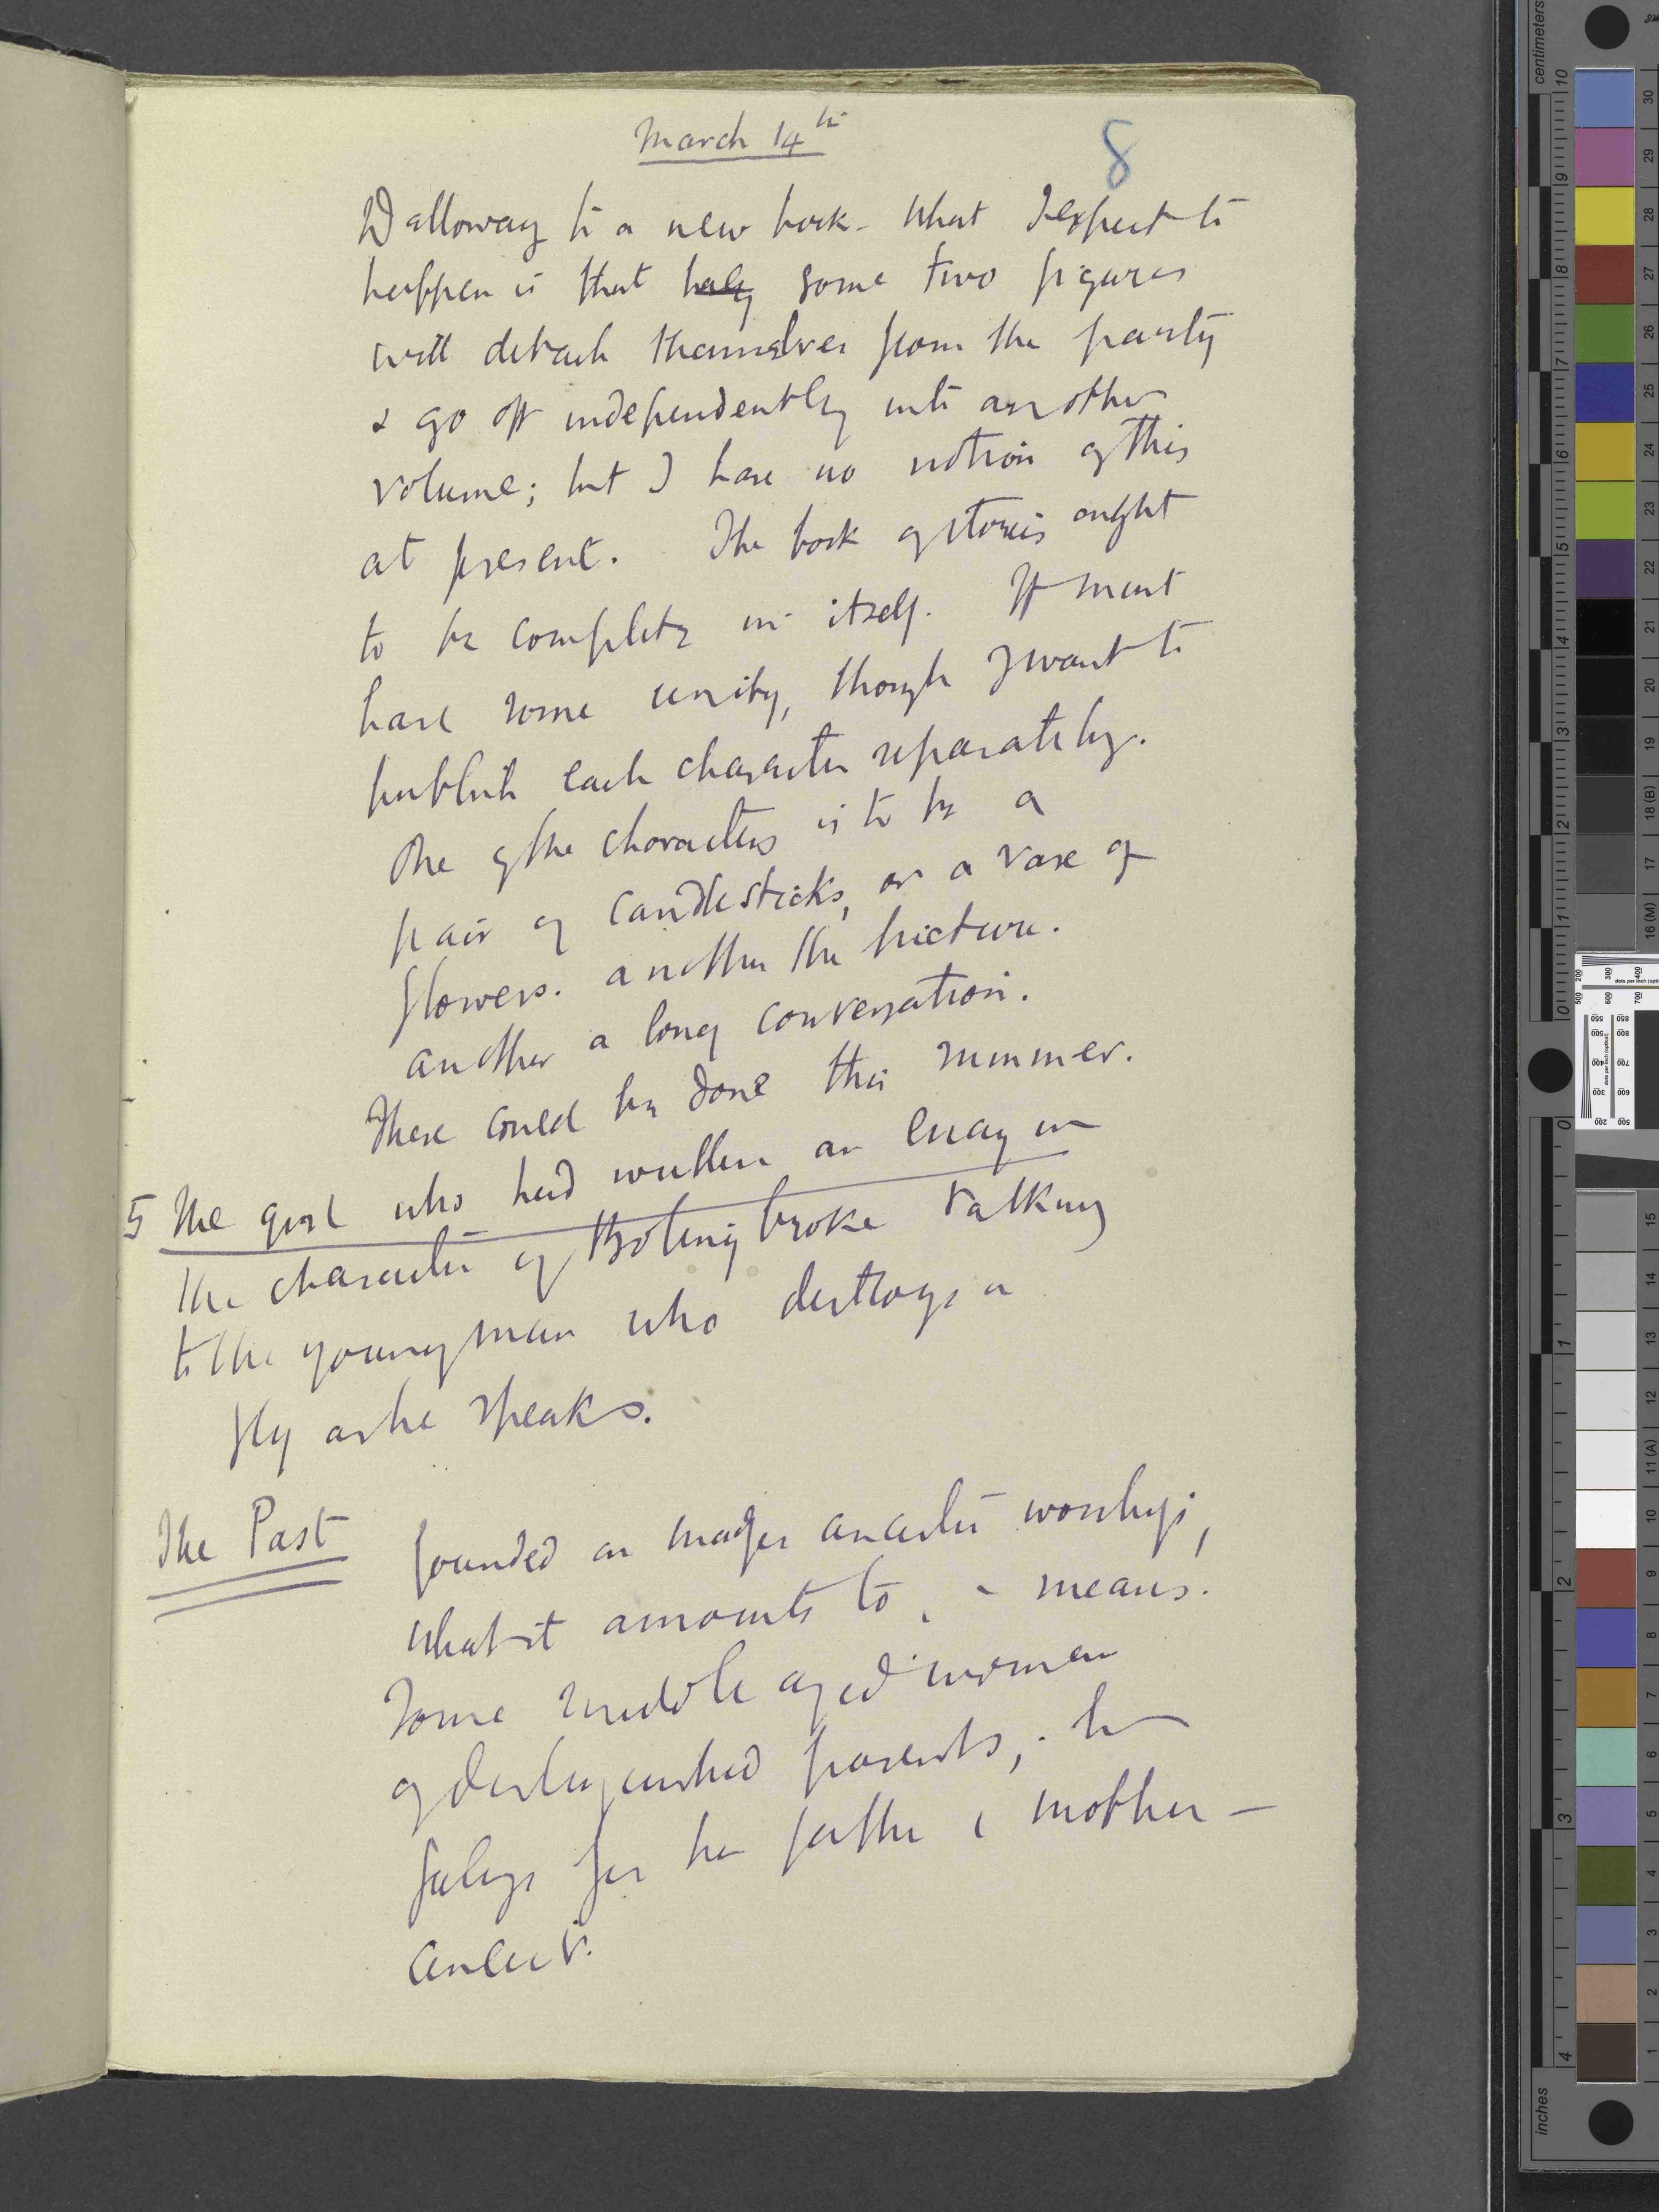 March 14th
8
Dalloway to a new book. What I expect to
happen is that some two figures
will detach themselves from the party
& go off independently into another
volume; but I have no notion of this
at present. The book of stories ought
to be complete in itself. It must
have some unity, though I want to
publish each character separately.
One of the characters is to be a
pair of candlesticks, or a vase of
flowers. another the picture.
another a long conversation.
These could be done this summer.
5 The girl who had written an essay on
the character of Bolingbroke talking
to the young man who destroys a
fly as he speaks.
The Past founded on images ancestor worship;
what it amounts to, & means.
Some middle aged woman
of distinguished parents; her
feelings for her father & mother –
centimeters
inches